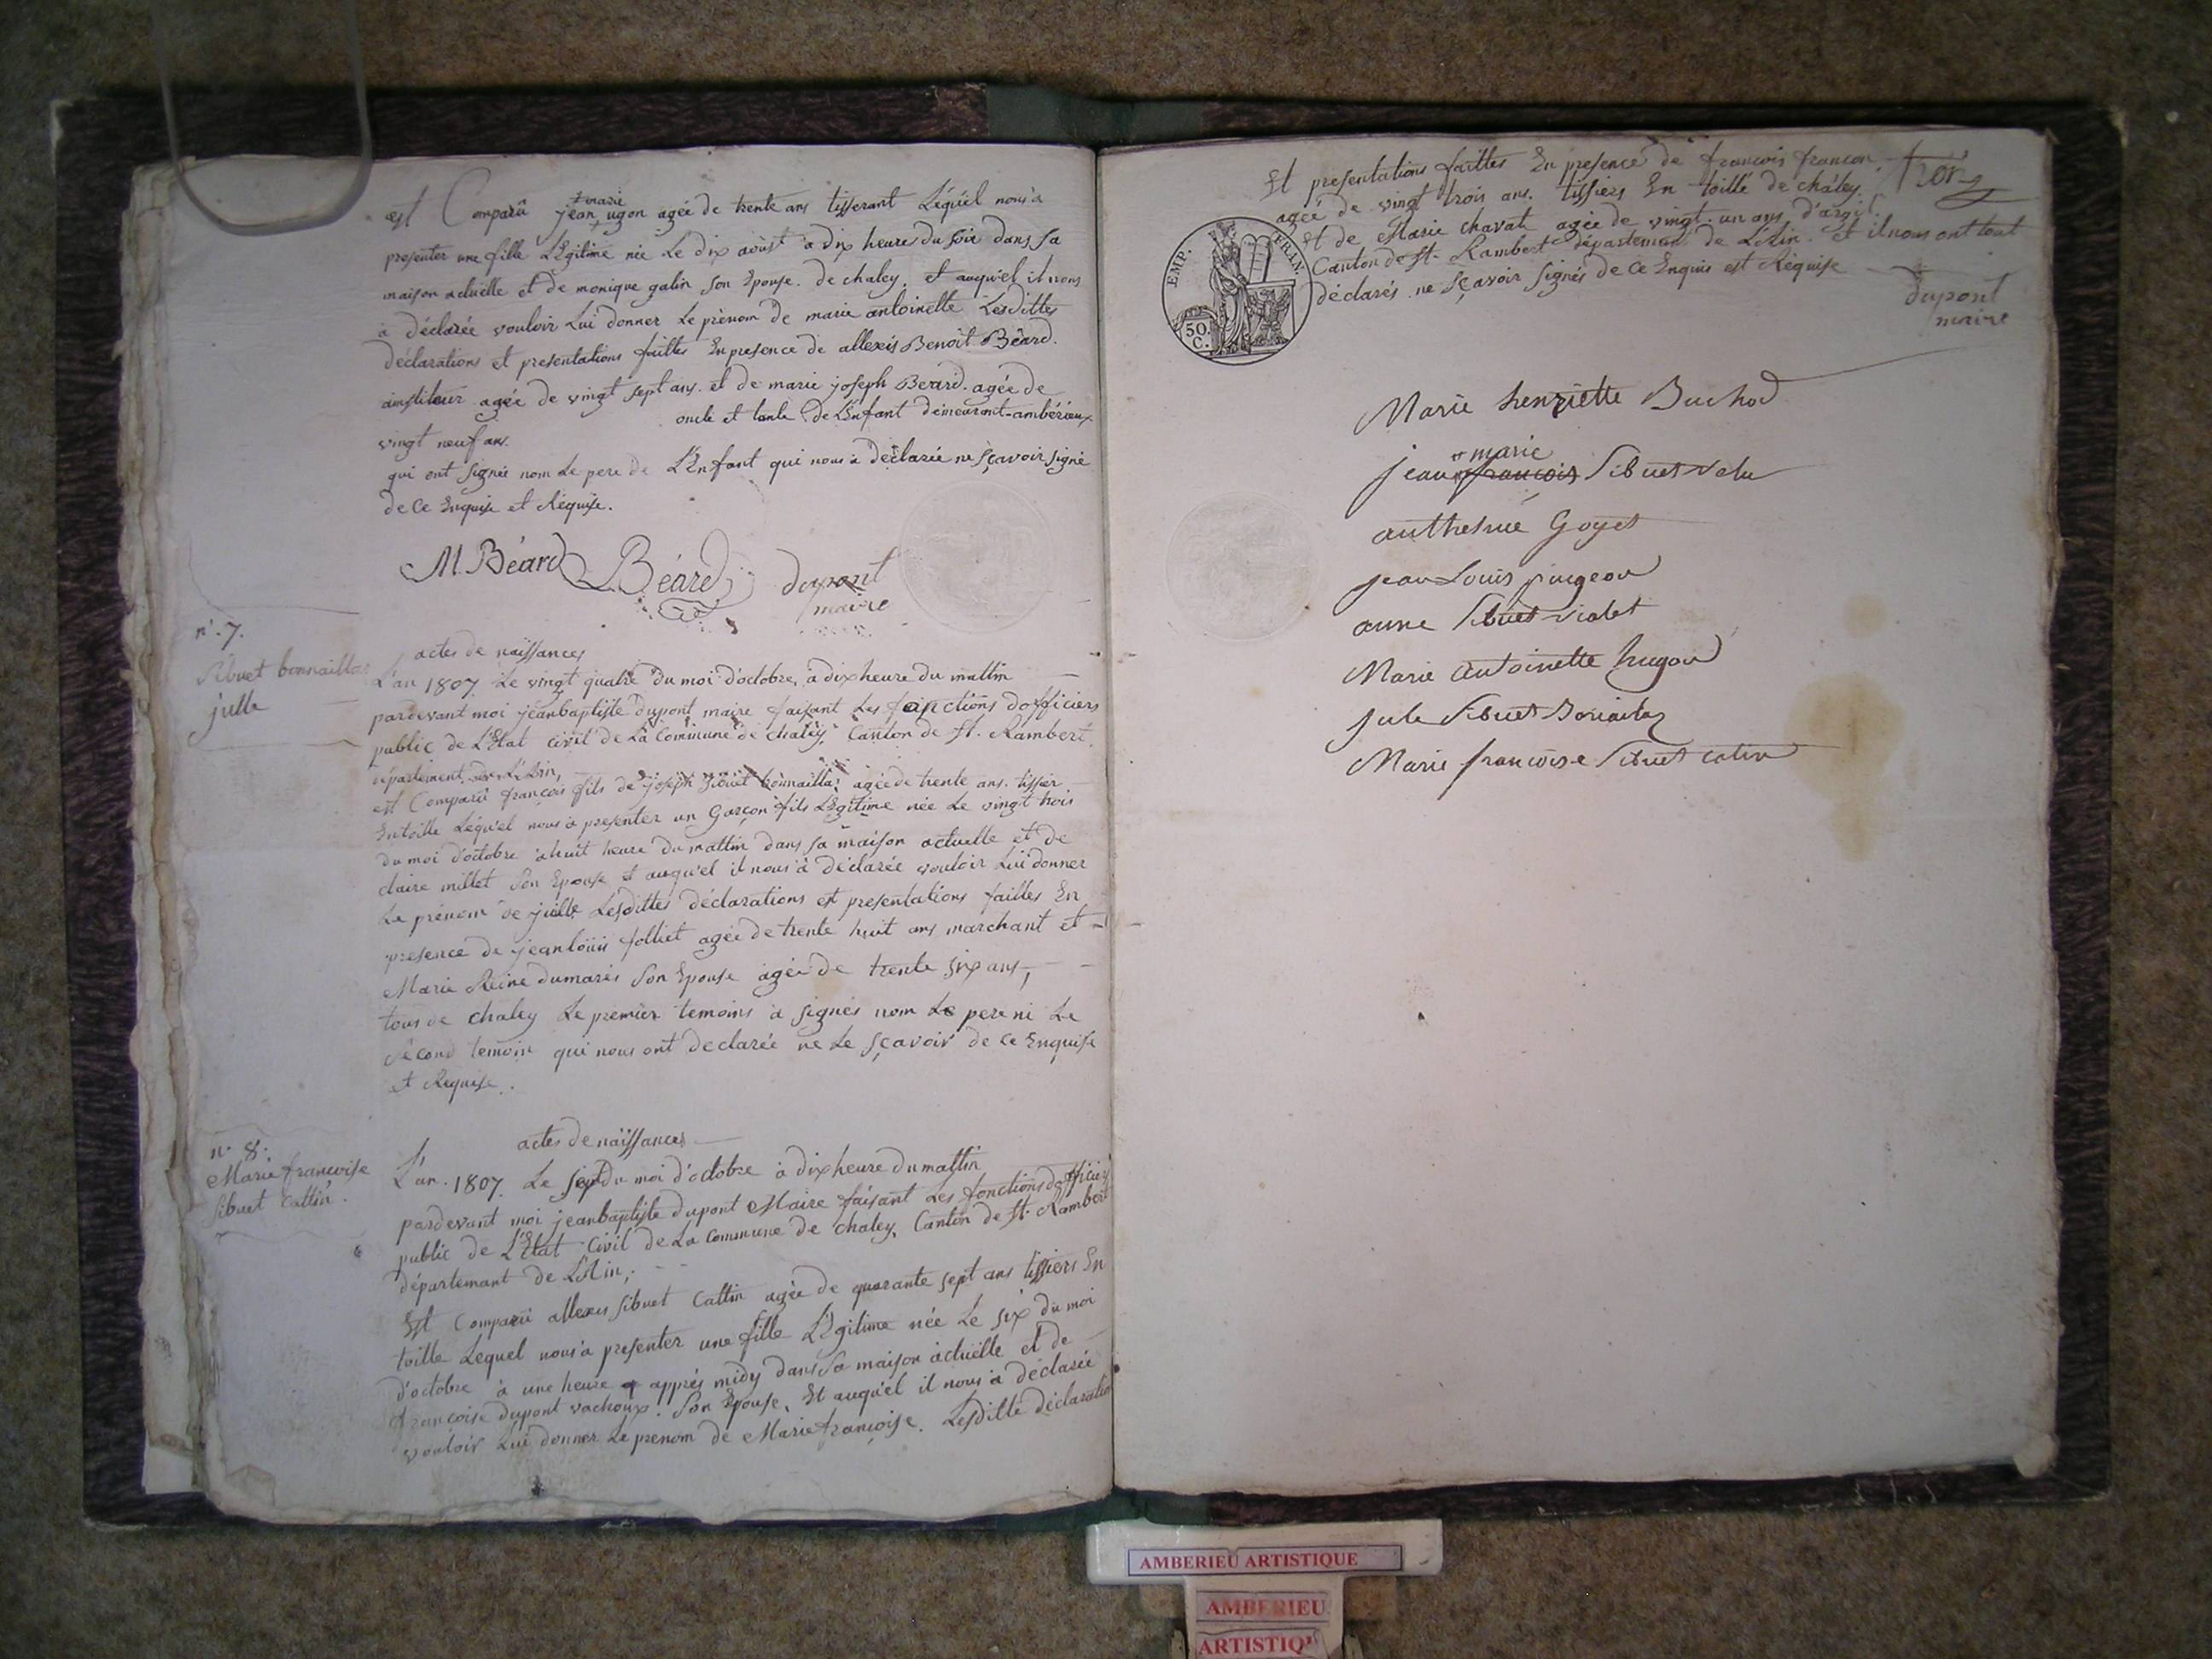 est Comparû jean + marie ugon agée de trente ans tisserant Léquël nous à
presenter une fille LEgitime née Le dix août à dix heure du soir dans sa
maison actuëlle et de monique galin son Epouse. de chaley. et auqu'el il nous
à déclarée vouloir Lui donner Le prénom de marie antoinette Lesdittes
déclarations et presentations faittes En presence de allexis Benoît Béard.
institeur agée de vingt sept ans. et de marie joseph Beard. agée de
oncle et tante de L'Enfant demeurant-ambérieux
vingt neuf ans.
qui ont signée nom Le pere de L'Enfant qui nous à déclarée ne sçavoir signé
de ce Enquise et Réquise.
M. Béard Béard dupont
maire
n°. 7.
Sibuet bonnaillas
julle
actes de naïssances
L'an 1807 Le vingt quatre du moi d'octobre, à dix heure du mattin
pardevant moi jeanbaptiste dupont maire faisant Les fonctions dofficiers
public de L'Etat civil de La Commune de chaley, Canton de St. Rambert.
département de L'Ain,
est Comparû françois fils de joseph Sibuet bonnaillas agée de trente ans. tissier
En toille Léqu'el nous à presenter un Garçon fils LEgitime née Le vingt trois
du moi d'octobre à huit heure du mattin dans sa maison actuelle et de
claire millet son Epouse et auqu'el il nous à déclarée vouloir Lui donner
Le prénom de julle Lesdittes déclarations et presentations faittes En
presence de jeanloüis folliet agée de trente huit ans marchant et
Marie Reine dumarés son Epouse agée de trente six ans,
tous de chaley Le premier temoins à signés nom Le pere ni Le
sécond temoin qui nous ont declarée ne Le sçavoir de ce Enquise
et Requise.
n°. 8.
Marie françoise
Sibuet Cattin.
actes de naïssances
L'an. 1807. Le sept du moi d'octobre à dix heure du mattin
pardevant moi jeanbaptiste dupont Maire faisant Les fonctions dofficiers
public de L'Etat Civil de La Commune de Chaley, Canton de St. Rambert
départemant de L'Ain,
Est Comparû allexis Sibuet Cattin agée de quarante sept ans tissiers En
toille Lequel nous à presenter une fille LEgitime née Le six du moi
d'octobre à une heure apprés midy dans sa maison actuëlle et de
françoise dupont vachoux. son Epouse, Et auqu'el il nous à déclarée
vouloir Lui donner Le prenom de Marie françoise. Lesditte déclaration
Et presentations faittes En presence de françois françon
agée de vingt trois ans. tissiers En toille de chaley.
Et de Marie chavat agée de vingt. un ans d'argil.
EMP. FRAN.
50.
C.
Canton de St. Rambert département de L'Ain. et il nous ont tout
déclarés ne sçavoir signés de ce Enquis est Réquise
dupont
maire
Marie henriette Buchod
jean françois marie Sibuet velu
anthelme Goyet
jean Louis pingeon
anne Sibuet violet
Marie antoinette hugon
jule Sibuet Bonailaz
Marie francoise Sibuet catin
AMBERIEU ARTISTIQUE
AMBERIEU
ARTISTIQU